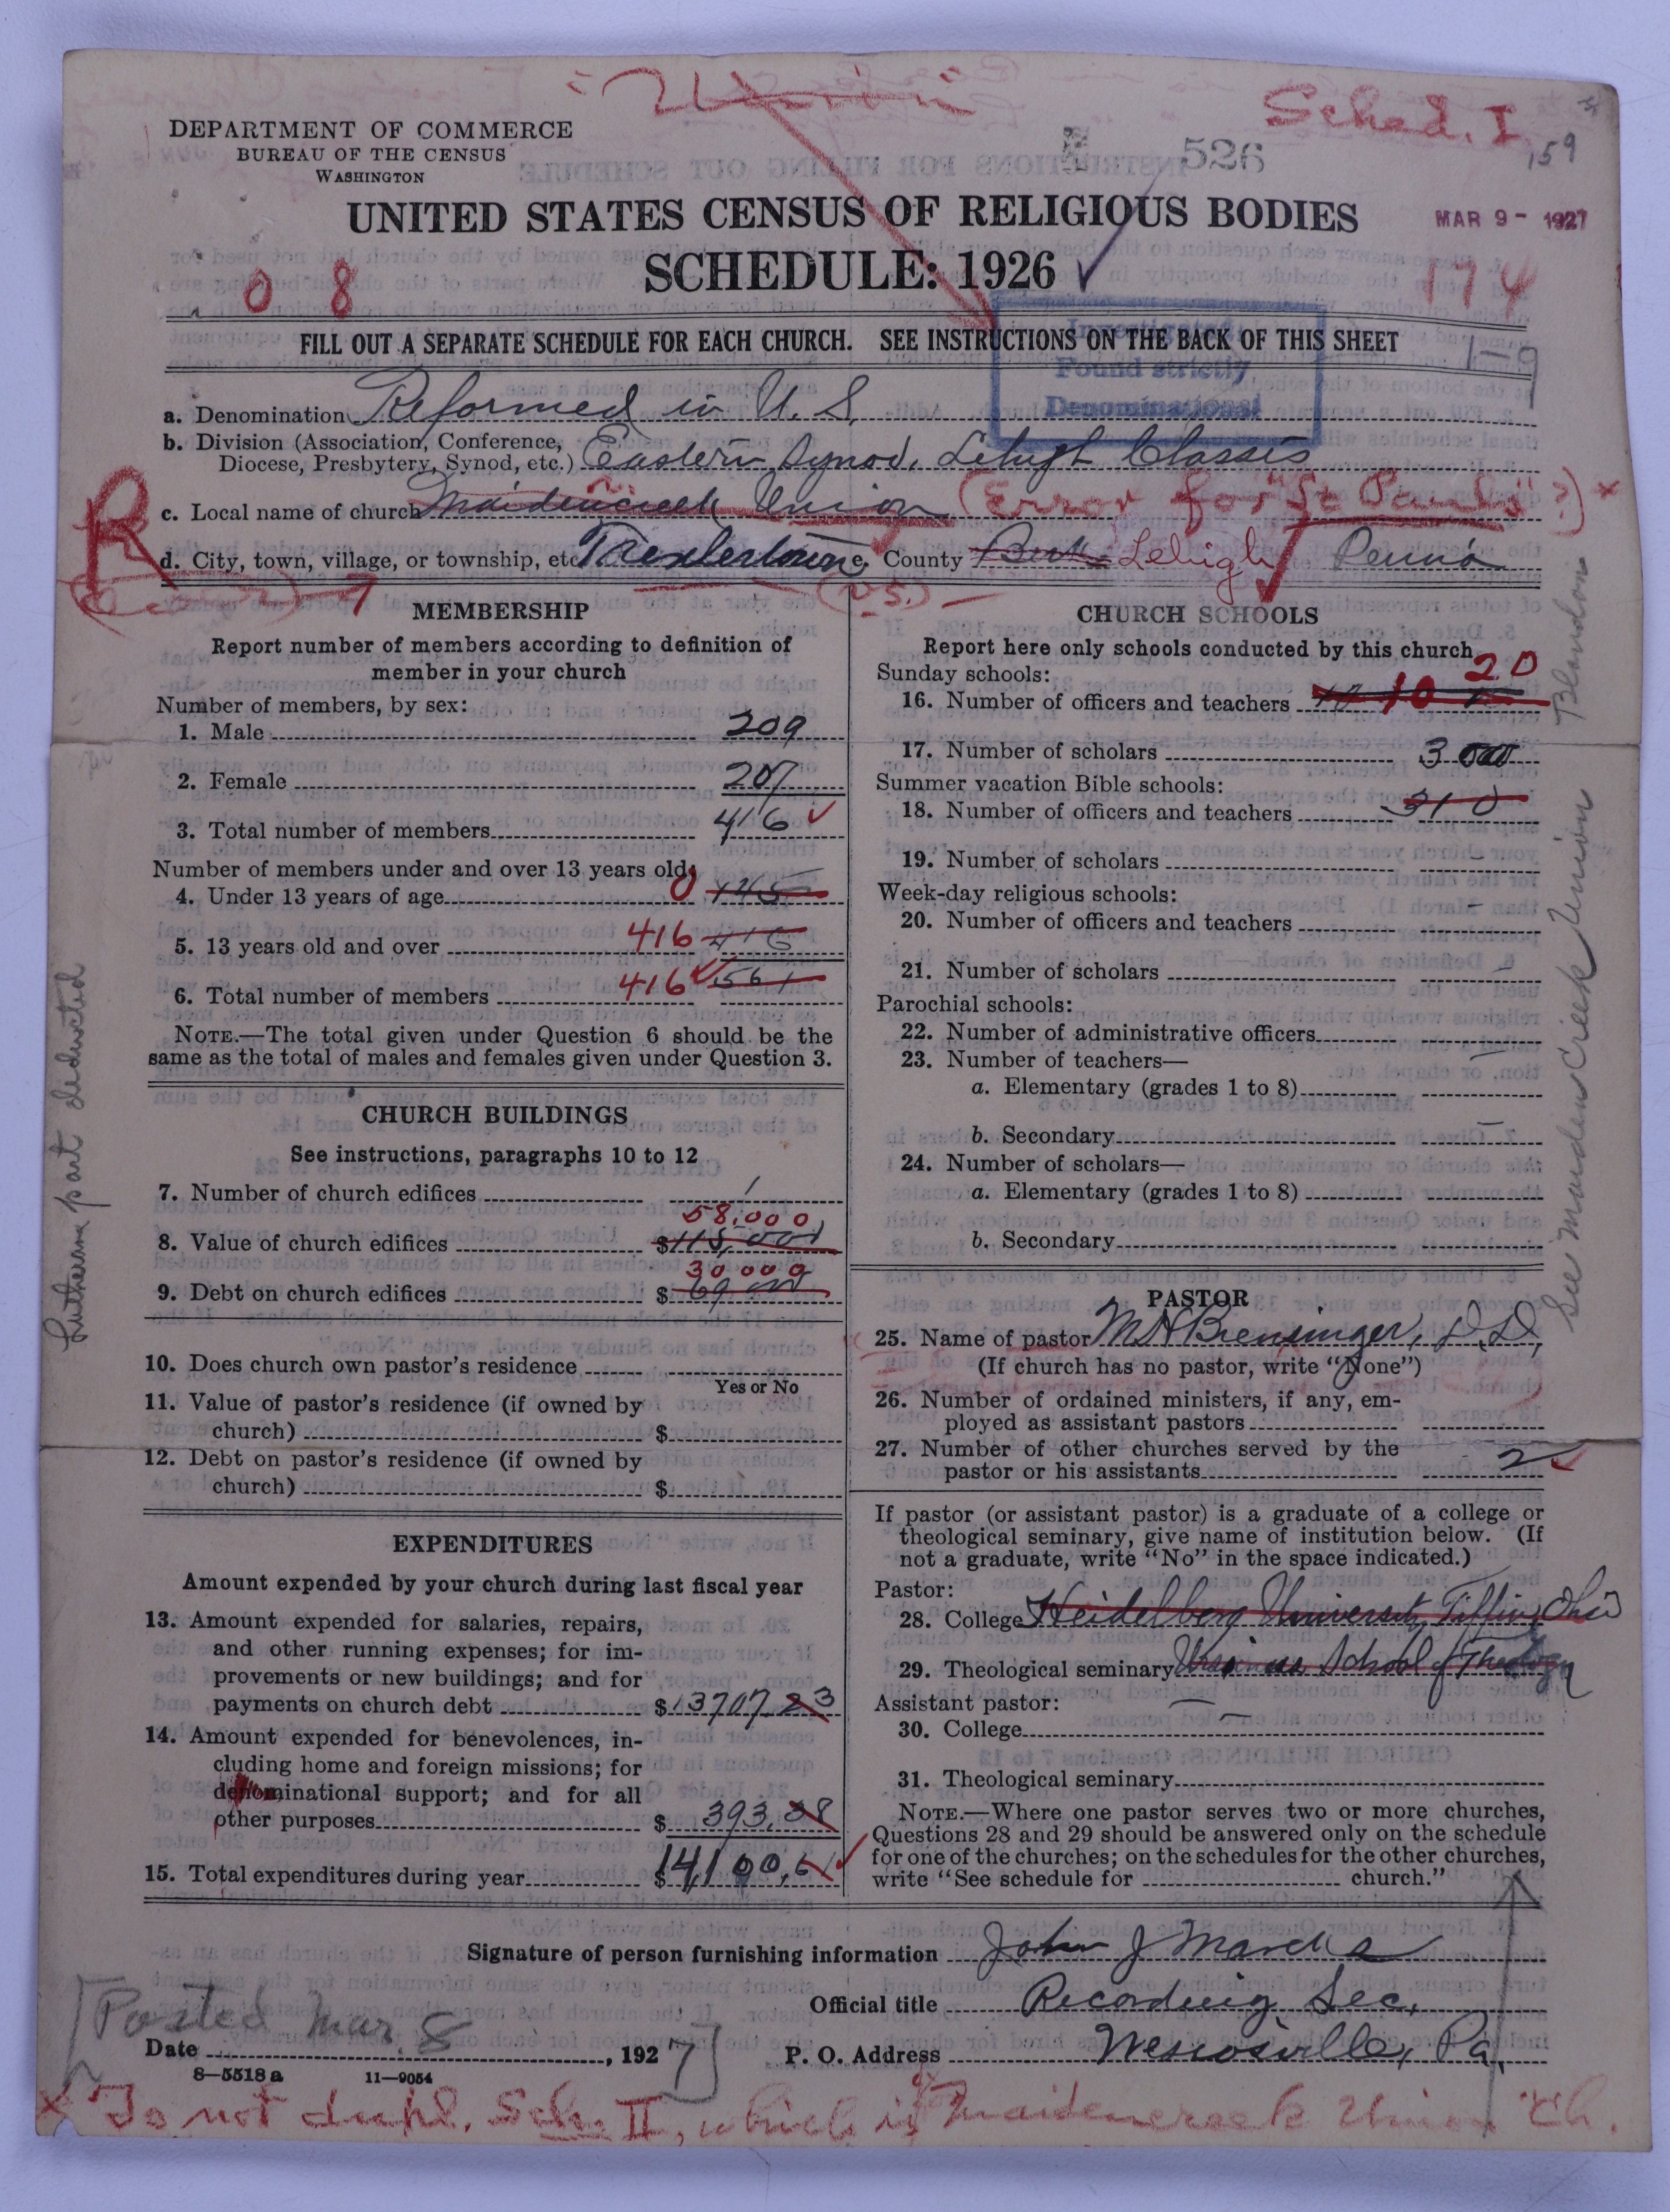 "Union"
Sched. I
159
DEPARTMENT OF COMMERCE
BUREAU OF THE CENSUS
WASHINGTON
526
UNITED STATES CENSUS OF RELIGIOUS BODIES
MAR 9 - 1927
SCHEDULE: 1926
0 8
174
FILL OUT A SEPARATE SCHEDULE FOR EACH CHURCH. SEE INSTRUCTIONS ON THE BACK OF THIS SHEET
1-9
Investigated
Found strictly
Denominational
a. Denomination Reformed in U. S.
b. Division (Association, Conference, Diocese, Presbytery, Synod, etc.) Eastern Synod, Lehigh Classis
R
c. Local name of church Maidencreek Union (Error for "St Paul's"?) x
d. City, town, village, or township, etc. Trexlertown e. County Berks Lehigh Penna
MEMBERSHIP
Report number of members according to definition of
member in your church
Number of members, by sex:
1. Male 209
2. Female 207
3. Total number of members 416
Number of members under and over 13 years old:
4. Under 13 years of age 0 145
5. 13 years old and over 416 416
6. Total number of members 416 561
NOTE.—The total given under Question 6 should be the
same as the total of males and females given under Question 3.
CHURCH BUILDINGS
See instructions, paragraphs 10 to 12
7. Number of church edifices 1
58,000
8. Value of church edifices $115,000
30000
9. Debt on church edifices $
10. Does church own pastor's residence
Yes or No
11. Value of pastor's residence (if owned by
church) $
12. Debt on pastor's residence (if owned by
church) $
EXPENDITURES
Amount expended by your church during last fiscal year
13. Amount expended for salaries, repairs,
and other running expenses; for im-
provements or new buildings; and for
payments on church debt $13707.23
14. Amount expended for benevolences, in-
cluding home and foreign missions; for
denominational support; and for all
other purposes $393.38
15. Total expenditures during year $14,100.61
Lutheran part deducted
CHURCH SCHOOLS
Report here only schools conducted by this church
Sunday schools:
20
16. Number of officers and teachers 10
17. Number of scholars 300
Summer vacation Bible schools:
18. Number of officers and teachers 310
19. Number of scholars -
Week-day religious schools:
20. Number of officers and teachers -
21. Number of scholars -
Parochial schools:
22. Number of administrative officers
23. Number of teachers—
a. Elementary (grades 1 to 8)
b. Secondary
24. Number of scholars—
a. Elementary (grades 1 to 8)
b. Secondary
PASTOR
25. Name of pastor M H Brensinger, D.D.
(If church has no pastor, write "None")
26. Number of ordained ministers, if any, em-
ployed as assistant pastors
27. Number of other churches served by the
pastor or his assistants 2
If pastor (or assistant pastor) is a graduate of a college or
theological seminary, give name of institution below. (If
not a graduate, write "No" in the space indicated.)
Pastor:
28. College Heidelberg University Tiffin, Ohio
29. Theological seminary Ursinus School of Theology
Assistant pastor: —
30. College —
31. Theological seminary
NOTE.—Where one pastor serves two or more churches,
Questions 28 and 29 should be answered only on the schedule
for one of the churches; on the schedules for the other churches,
write "See schedule for church."
See Maiden Creek Union Blandon
Signature of person furnishing information John J Marcks
Official title Recording Sec.
[Posted Mar. 8
Date , 1927]
P. O. Address Wescosville, Pa.
8—5518 a 11—9054
x To not dupl. Sch. II, which is Maidencreek Union Ch.